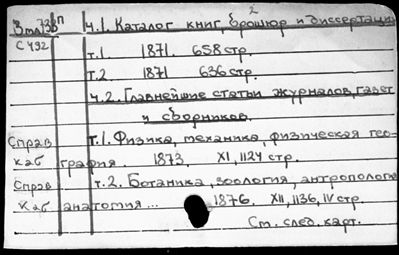 2
ч.1. Каталог книг, брошюр и диссертаций
С 492
т.1 1871. 658 стр.
т.2 1871 636 стр.
ч.2. Главнейшие статьи журналов, газет
и сборников.
Справ т.1. Физика, механика, физическая гео-
каб графия. 1873. XI, 1124 стр.
Справ т.2. Ботаника, зоология, антрополога
каб анатомия... 1876. XII, 1136, IV стр.
См. след. карт.